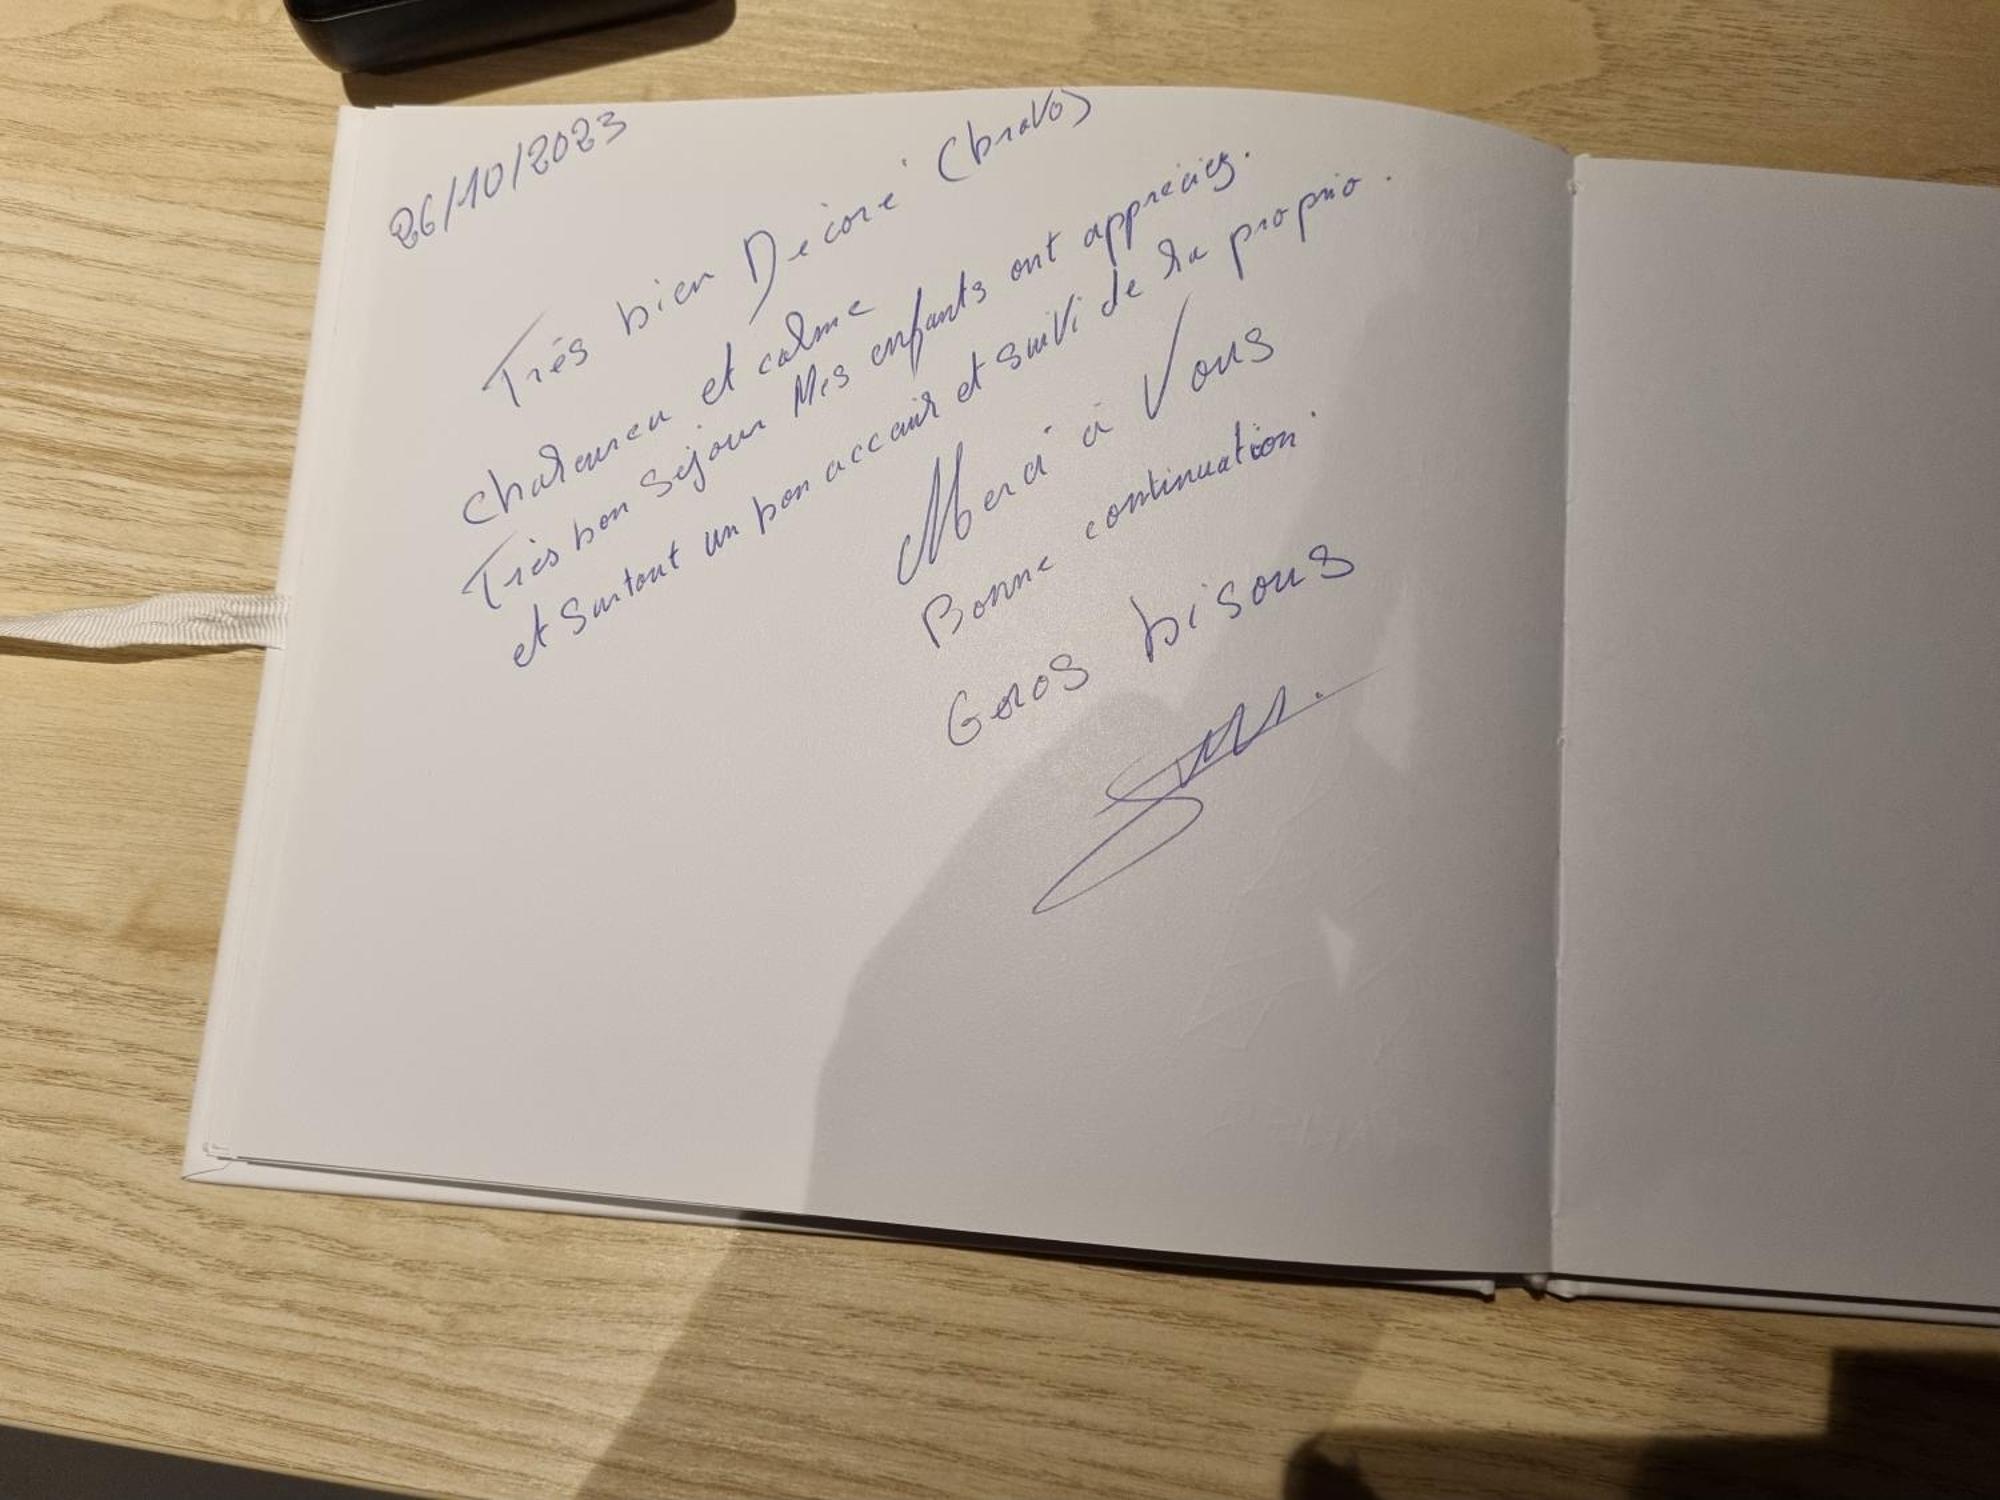 26/10/2023
Très bien Décoré (bravo)
chaleureu et calme
Très bon séjour Mes enfants ont appréciez.
et surtout un bon accair et suivi de la proprio.
Merci à Vous
Bonne continuation.
Gros bisous